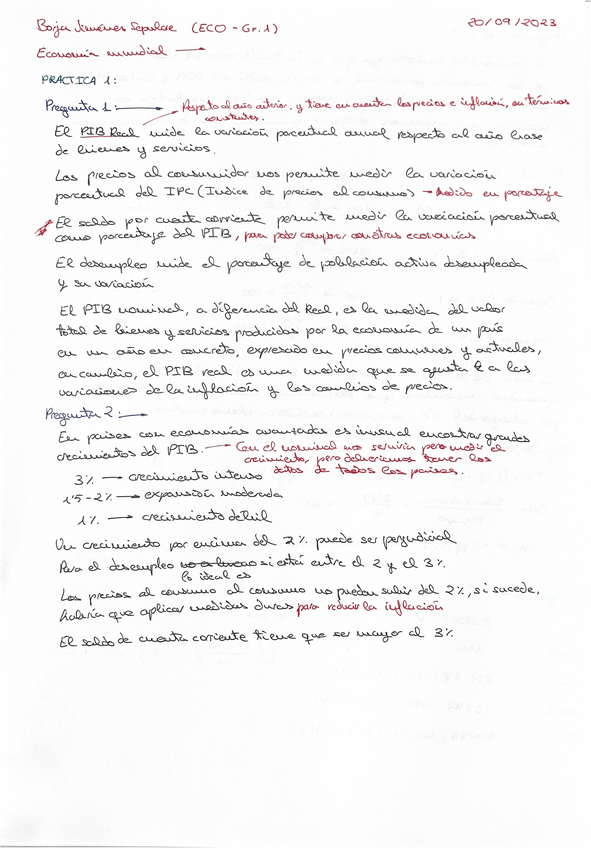 Borja Jiménez Sepulcre (ECO - Gr.1) 20/09/2023
Economía mundial →
PRACTICA 1:
Pregunta 1: → Respeto al año anterior, y tiene en cuenta los precios e inflación, en términos
constantes.
El PIB Real mide la variación porcentual anual respecto al año base
de bienes y servicios.
Los precios al consumidor nos permite medir la variación
porcentual del IPC (Indice de precios al consumo) → Medido en porcentaje
* El saldo por cuenta corriente permite medir la variación porcentual
como porcentaje del PIB, para poder comparar con otras economías
El desempleo mide el porcentaje de población activa desempleada
y su variación
El PIB nominal, a diferencia del Real, es la medida del valor
total de bienes y servicios producidos por la economía de un país
en un año en concreto, expresado en precios comunes y actuales,
en cambio, el PIB real es una medida que se ajusta a las
variaciones de la inflación y los cambios de precios.
Pregunta 2: →
En paises con economías avanzadas es inusual encontrar grandes
crecimientos del PIB. → Con el nominal nos serviría para medir el
crecimiento, pero deberíamos tener los
datos de todos los países.
3% → crecimiento intenso
1'5-2% → expansión moderada
1% → crecimiento débil
Un crecimiento por encima del 2% puede ser perjudicial
Para el desempleo lo ideal es si está entre el 2 y el 3%
Los precios al consumo al consumo no puedan subir del 2%, si sucede,
habría que aplicar medidas duras para reducir la inflación
El saldo de cuenta corriente tiene que ser mayor al 3%